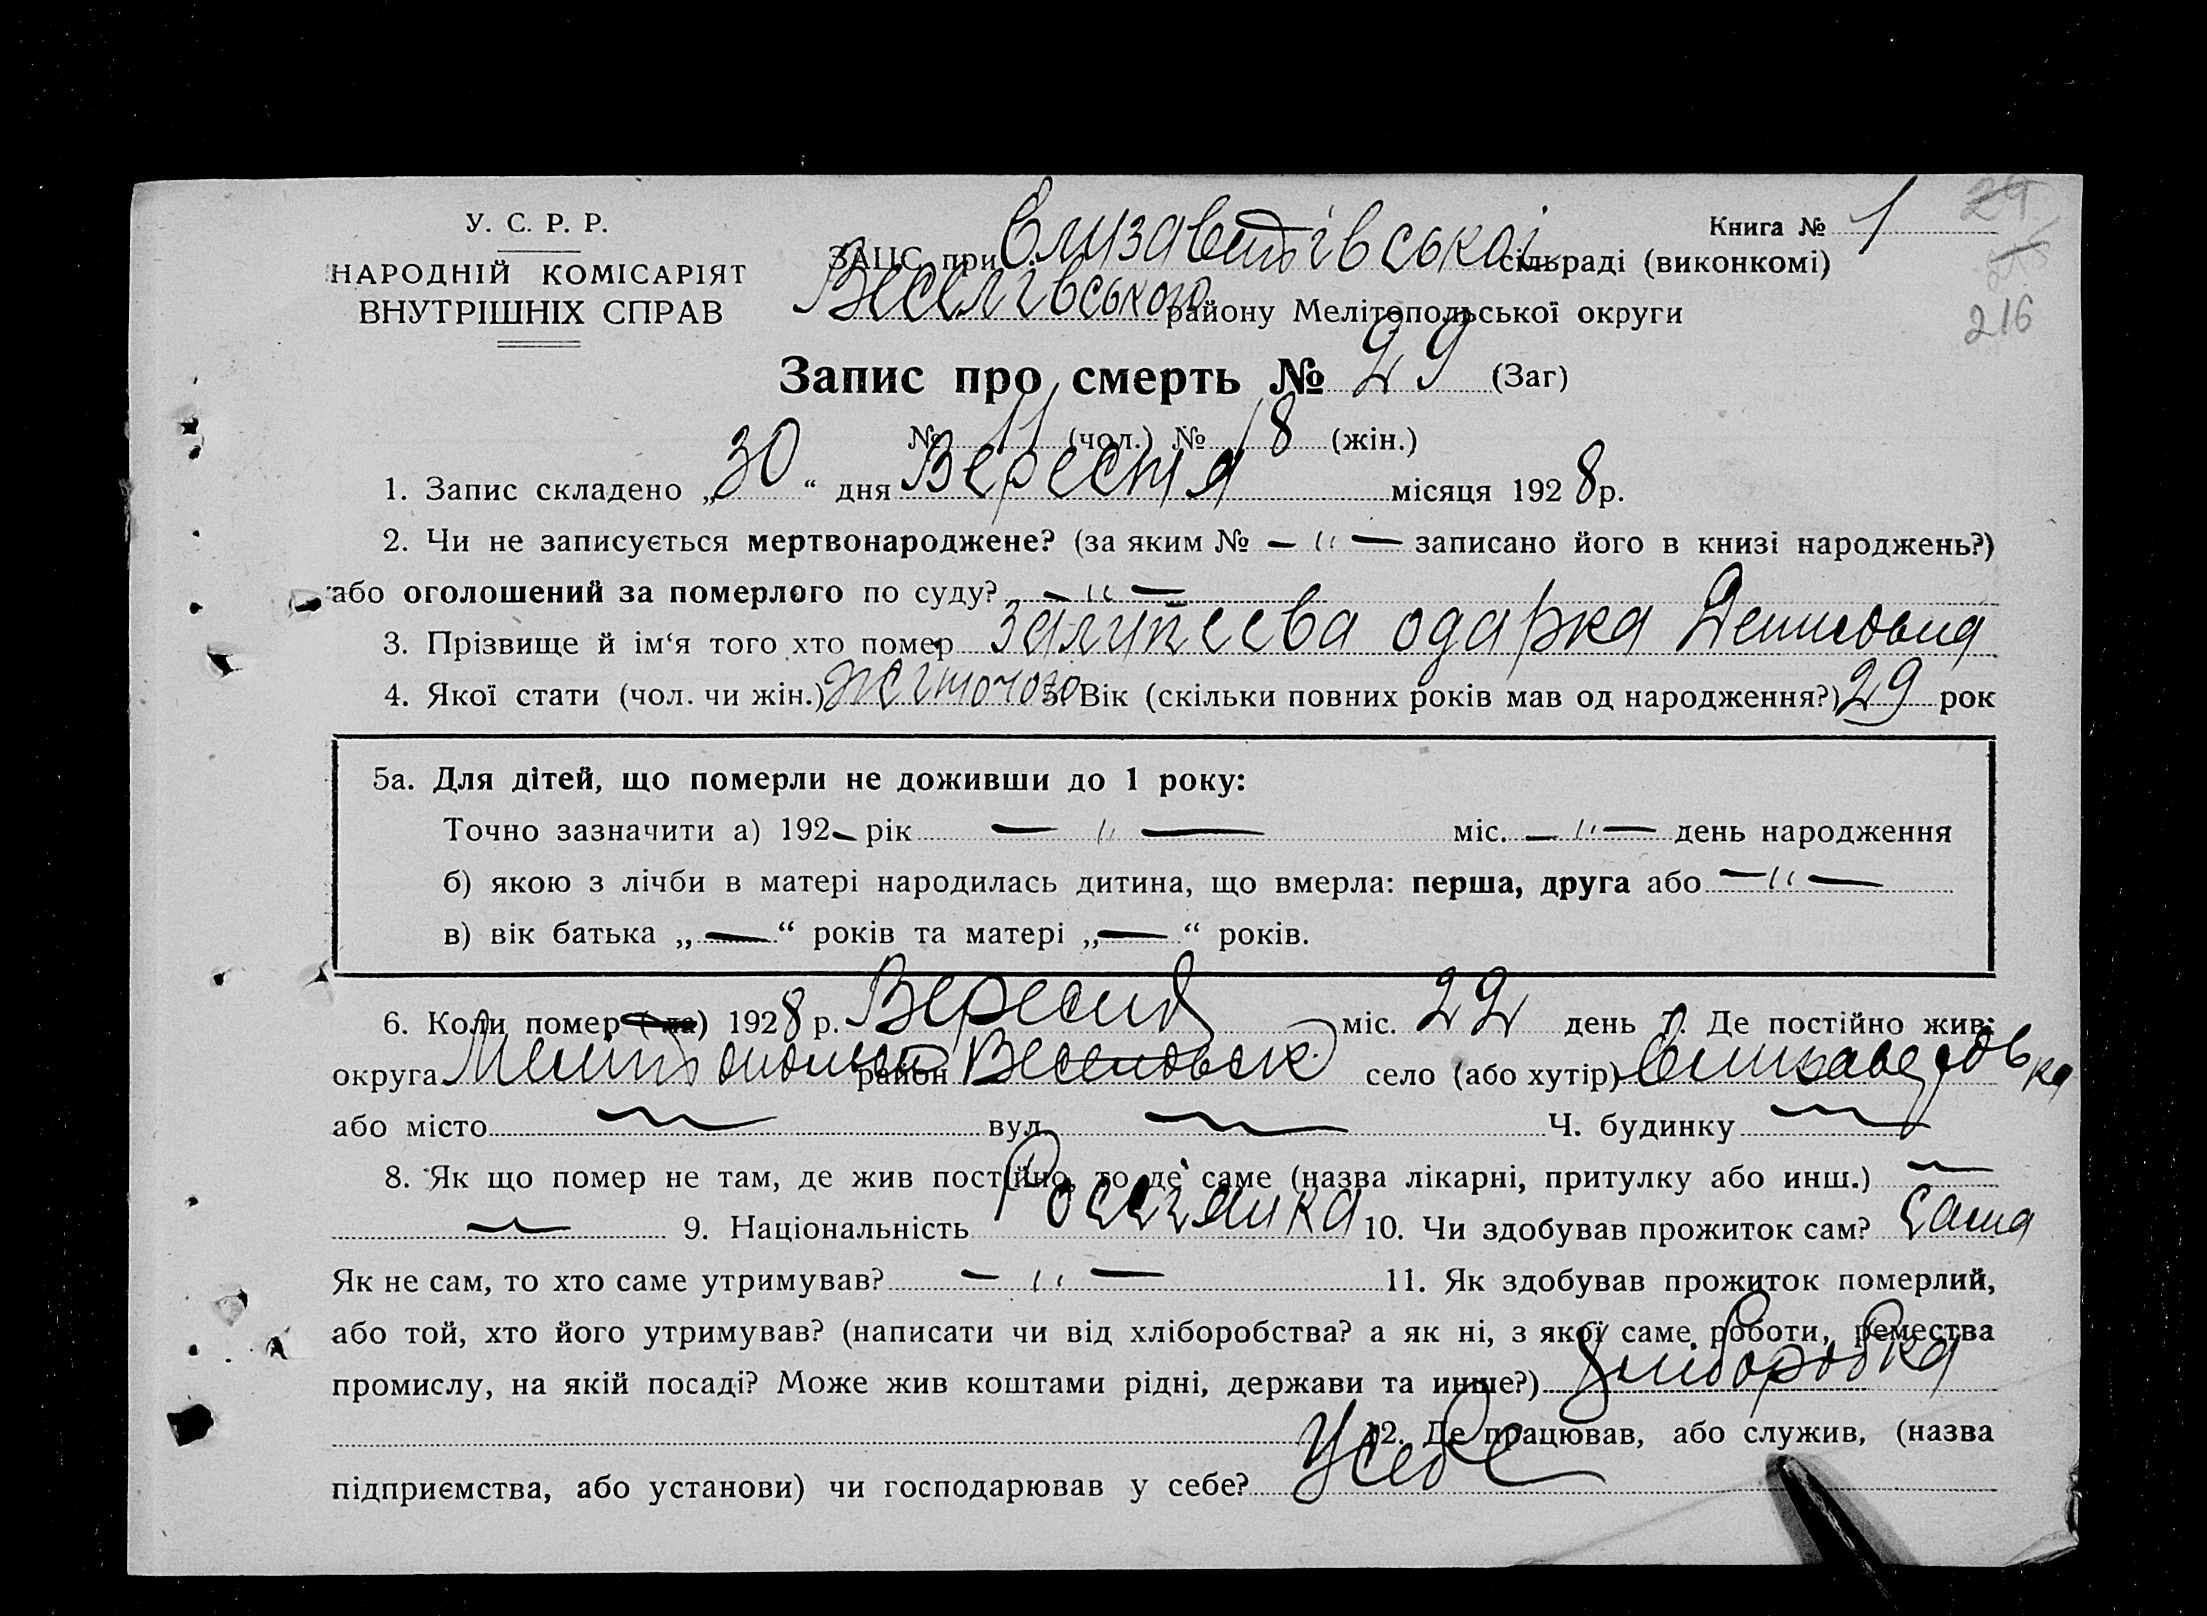 У. С. Р. Р.
НАРОДНІЙ КОМІСАРІЯТ
ВНУТРІШНІХ СПРАВ
Книга № 1
29
216
ЗАЦС при Єлизаветівській сільраді (виконкомі)
Веселівського району Мелітопольської округи
Запис про смерть № 29 (Заг)
№ 11 (чол.) № 18 (жін.)
1. Запис складено „ 30 “ дня Вересня місяця 1928 р.
2. Чи не записується мертвонароджене? (за яким № — " — записано його в книзі народжень?)
або оголошений за померлого по суду? — " —
3. Прізвище й ім‘я того хто помер одарка Денисовна
4. Якої стати (чол. чи жін.) жіночого 5. Вік (скільки повних років мав од народження?) 29 рок
5а. Для дітей, що померли не доживши до 1 року:
Точно зазначити а) 192— рік — " — міс. — " — день народження
б) якою з лічби в матері народилась дитина, що вмерла: перша, друга або — " —
в) вік батька „ — “ років та матері „ — “ років.
6. Коли помер (-ла) 1928 р. Вересня міс. 22 день 7. Де постійно жив:
округа район Веселовськ. село (або хутір)
або місто — вул. — Ч. будинку —
8. Як що помер не там, де жив постійно, то де саме (назва лікарні, притулку або инш.) —
— 9. Національність 10. Чи здобував прожиток сам? сама
Як не сам, то хто саме утримував? — " — 11. Як здобував прожиток померлий,
або той, хто його утримував? (написати чи від хліборобства? а як ні, з якої саме роботи, ремества
промислу, на якій посаді? Може жив коштами рідні, держави та инше?)
12. Де працював, або служив, (назва
підприємства, або установи) чи господарював у себе? У себе